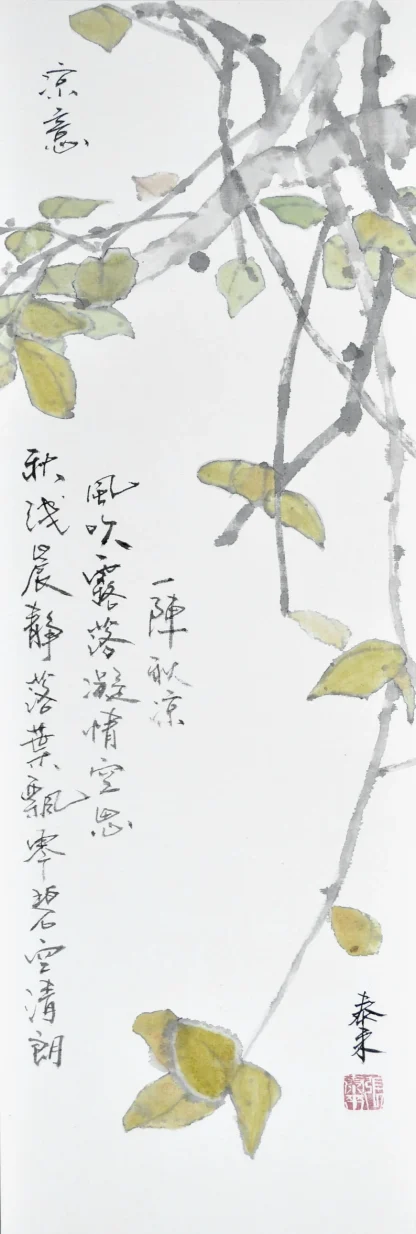 凉意
秋浅晨静落葉飄零碧空清朗
風吹露落凝情空思
一陣秋凉
泰来